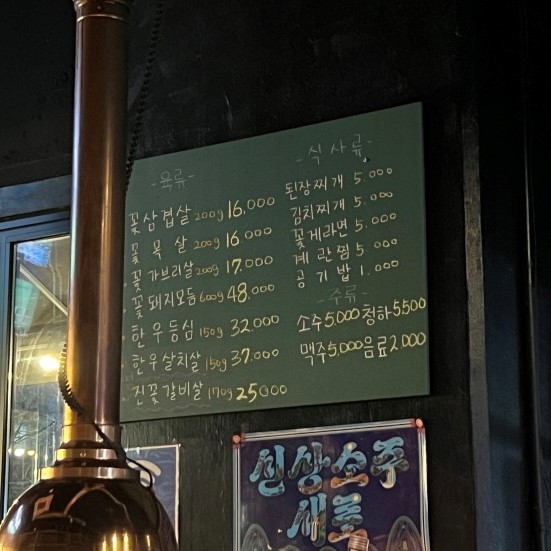 -육류-
꽃삼겹살 200g 16,000
꽃 목 살 200g 16,000
꽃 가브리살 200g 17,000
꽃돼지모듬 600g 48,000
한우등심 150g 32,000
한우살치살 150g 37,000
진꽃갈비살 170g 25000
-식사류-
된장찌개 5.000
김치찌개 5.000
꽃게라면 5.000
계란찜 5 000
공기밥 1.000
-주류-
소주5,000청하5500
맥주5,000음료2000
신상소주
새로